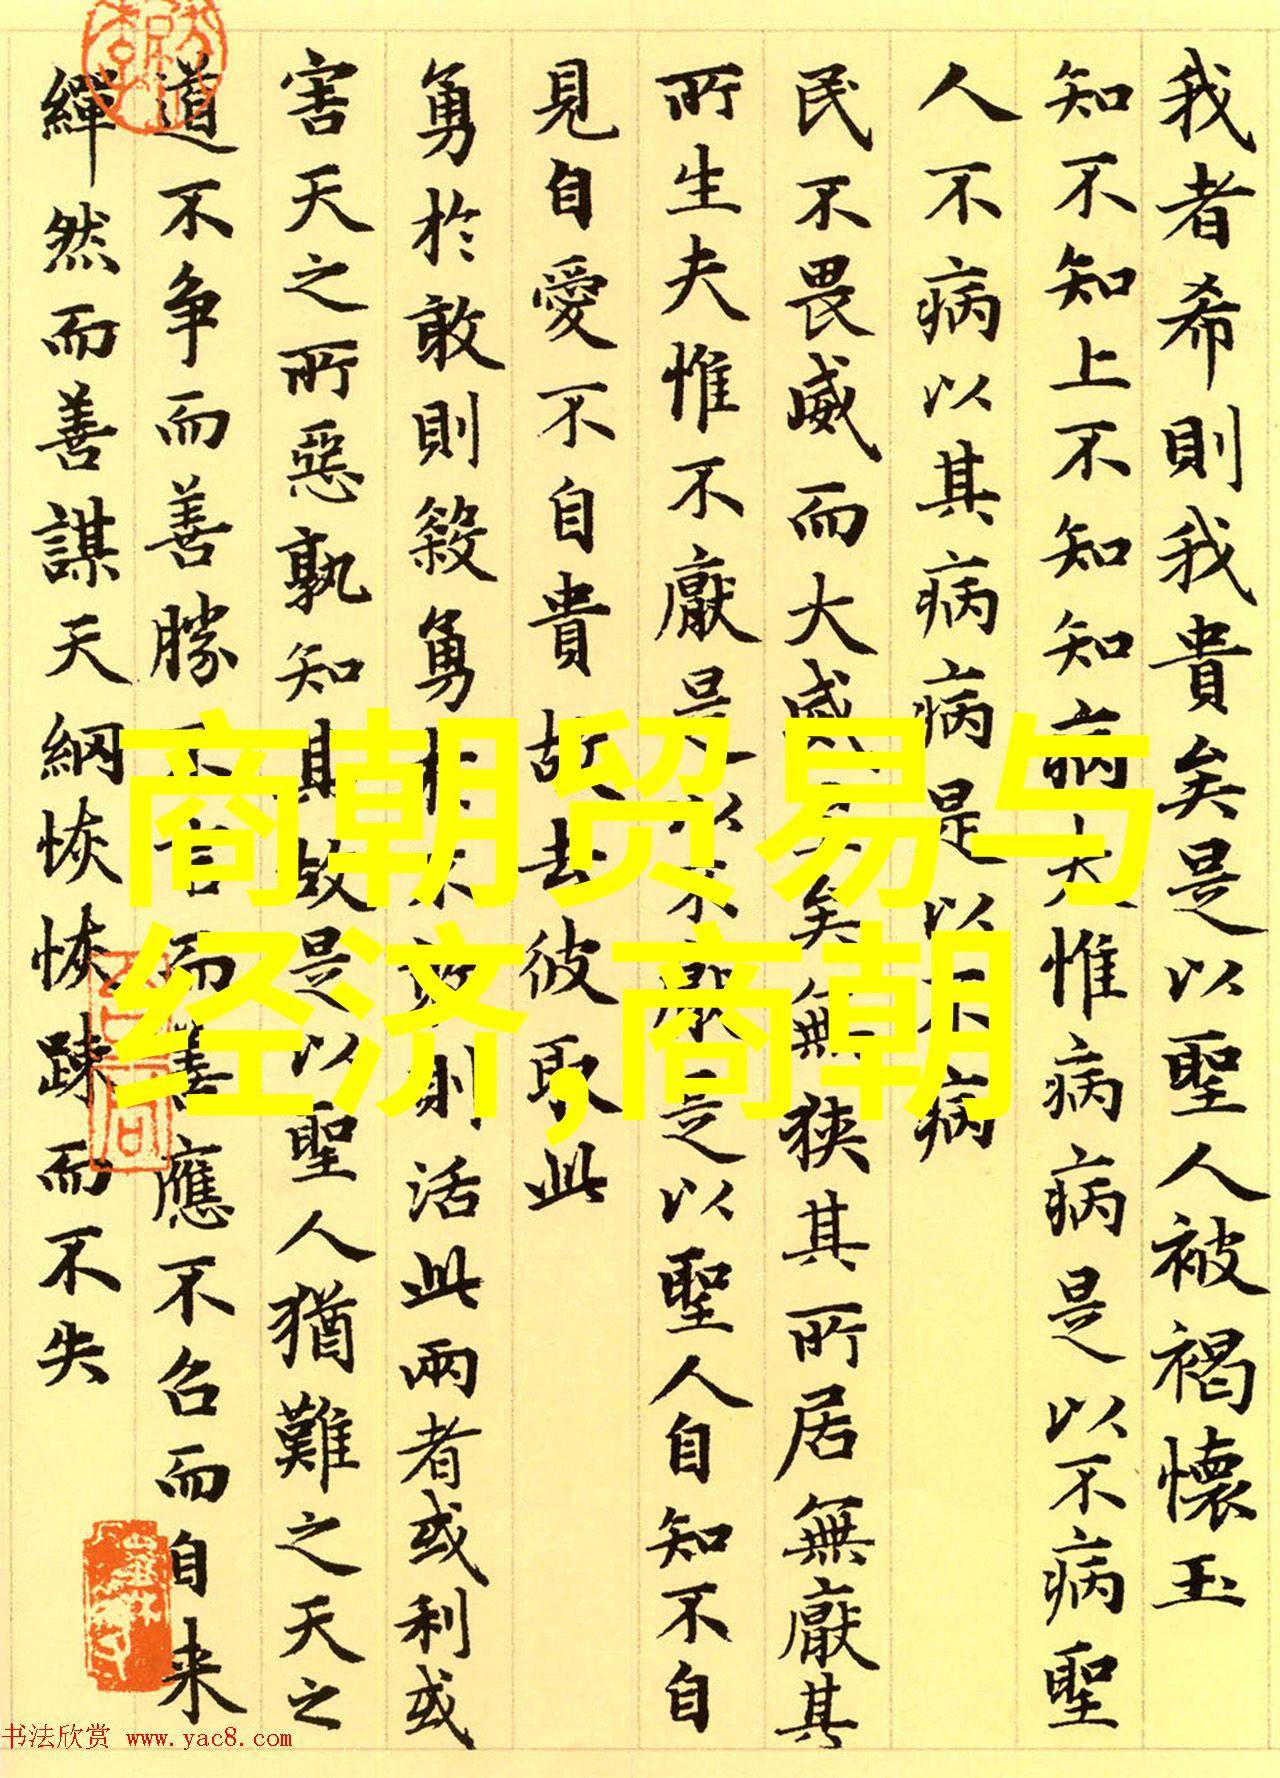 我者希則我貴矣是以聖人被褐懷玉
知不知上不知知病夫惟病病是以不病聖
人不病以其病病病是以不病
民不畏威而大威至矣無狹其所居無厭其
所生夫惟不厭是以不厭是以聖人自知不自
見自愛不自貴故去彼取此
勇於敢則殺勇於不敢則活此兩者或利或
害天之所惡孰知其故是以聖人猶難之天之
道不争而善勝不言而善應不召而自来
繟然而善謀天網恢恢踈而不失
商朝贸易与
经济,商朝
书法欣赏 www.yac8.com